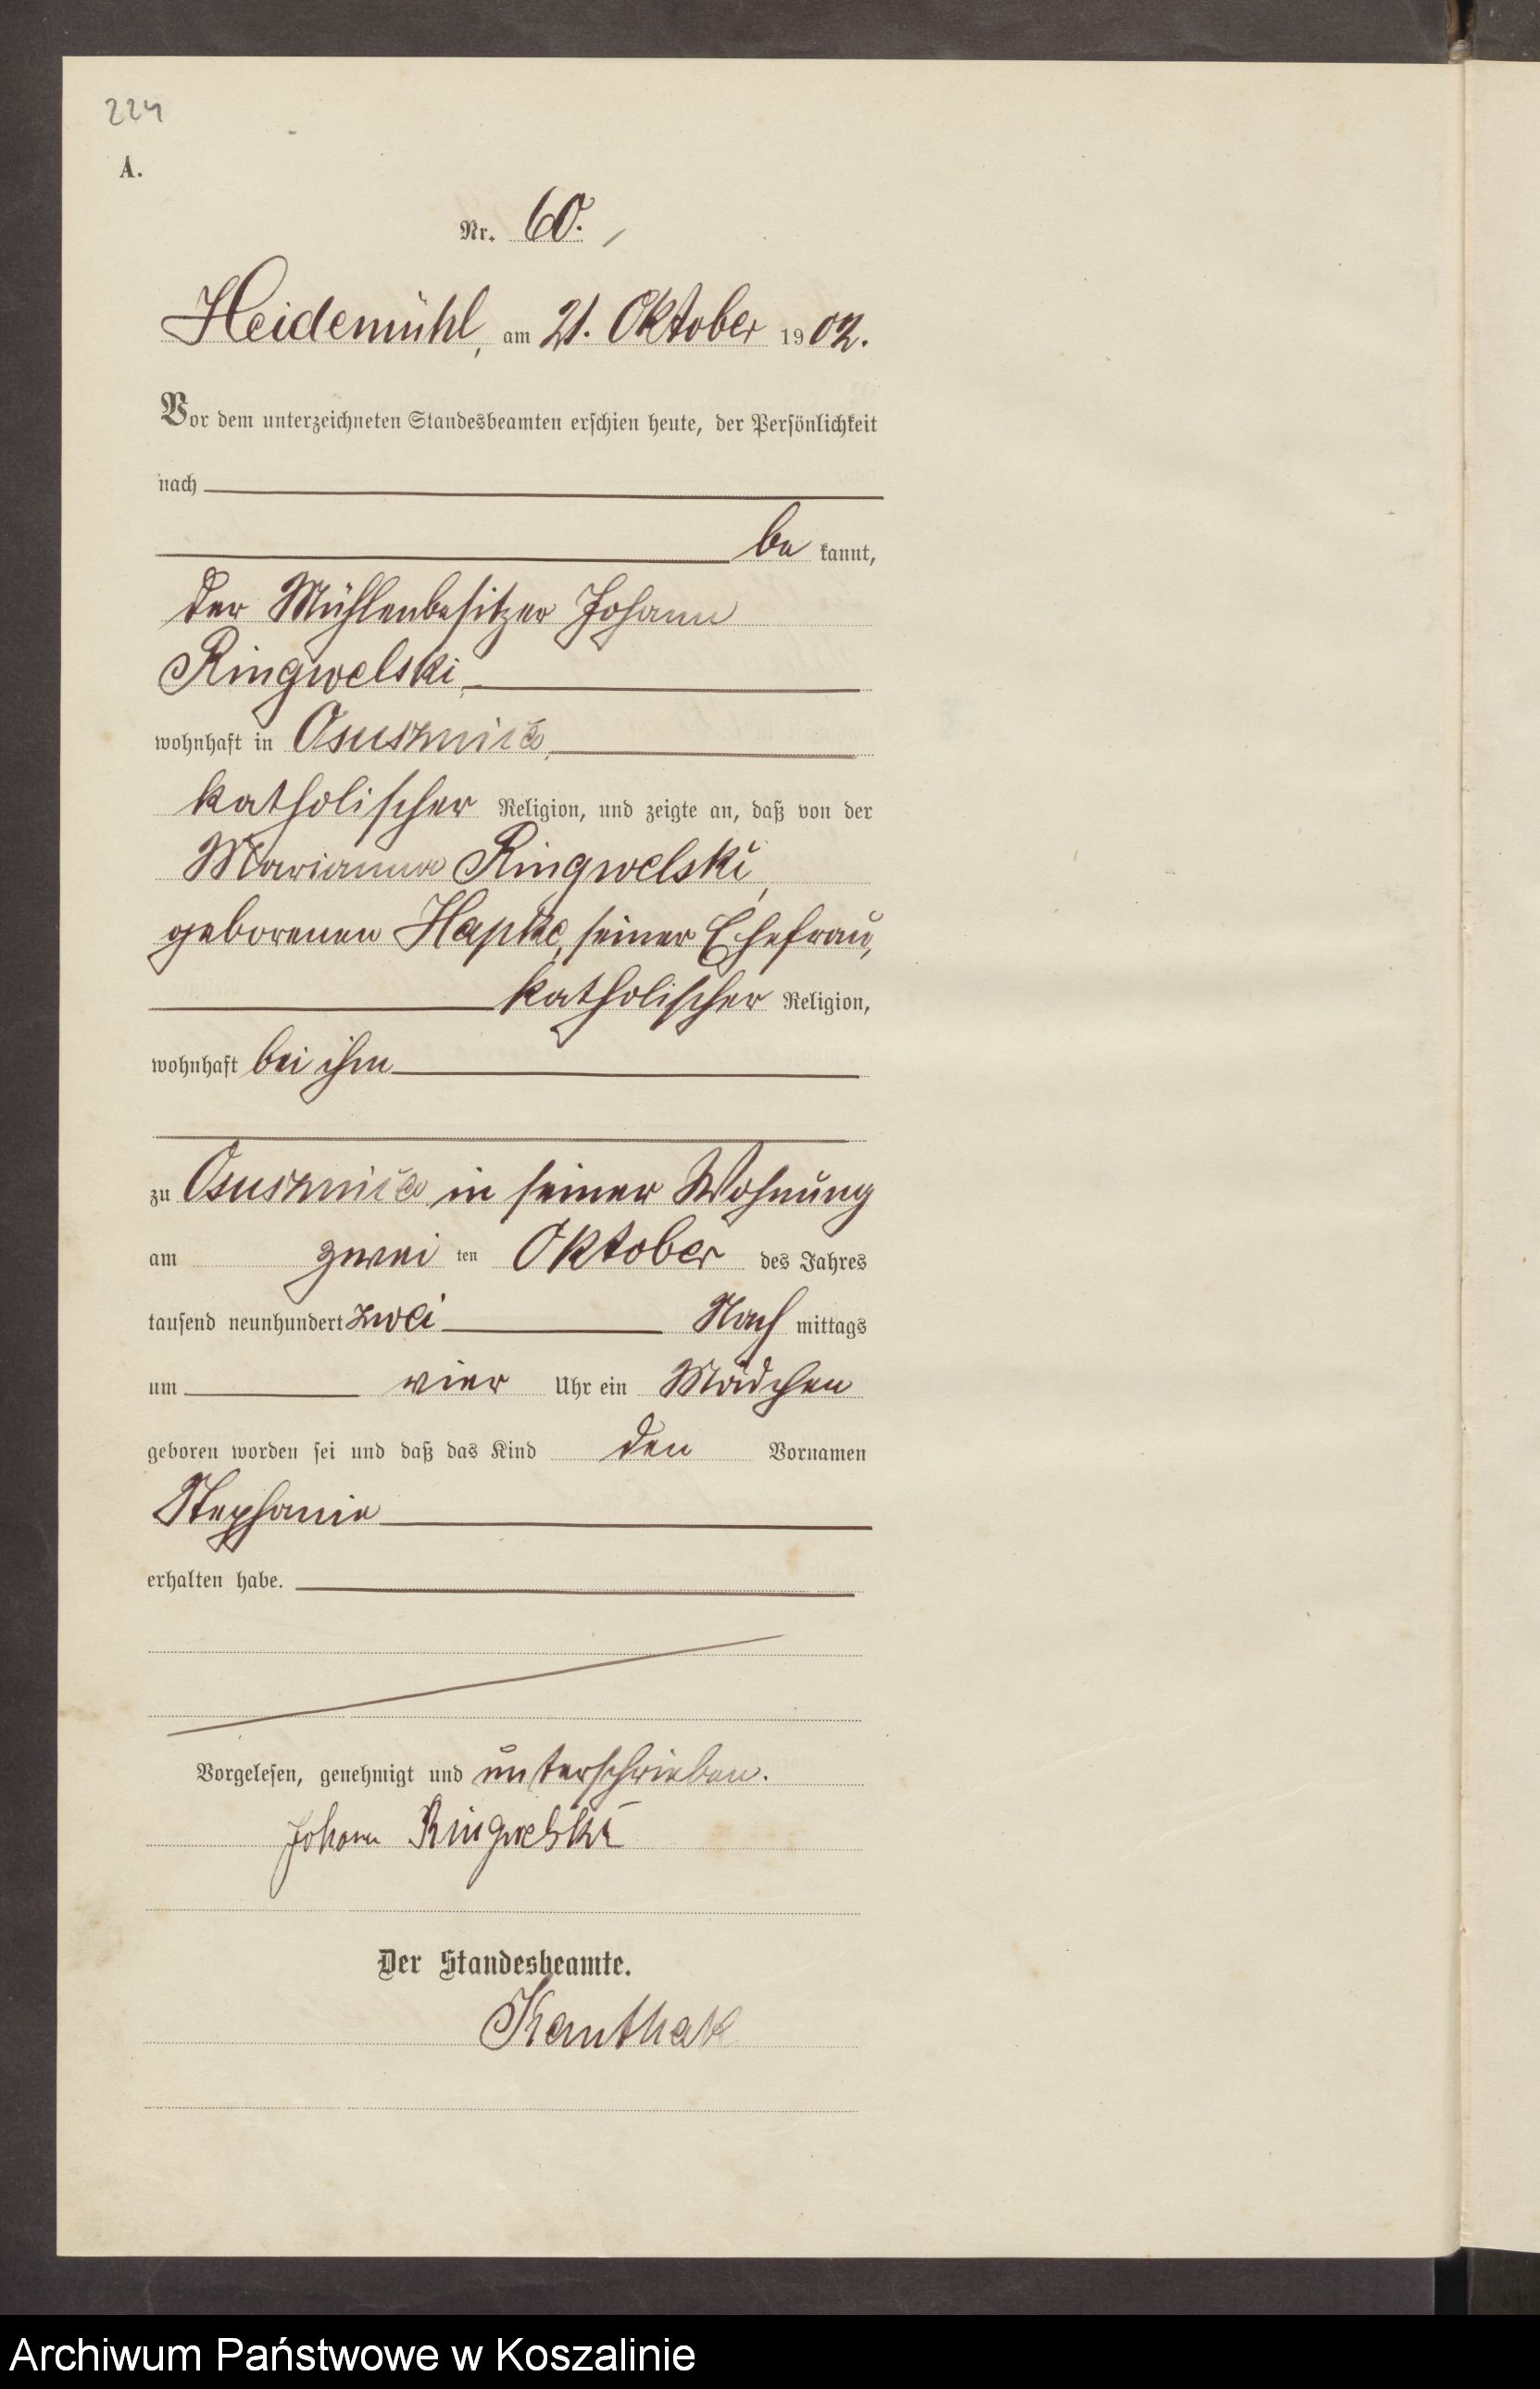 224
A.
Nr. 60.
Heidemühl, am 21. Oktober 1902.
Vor dem unterzeichneten Standesbeamten erschien heute, der Persönlichkeit
nach
bekannt,
der Mühlenbesitzer Johann
Ringwelski,
wohnhaft in Osusznica,
katholischer Religion, und zeigte an, daß von der
Marianna Ringwelski,
geborenen Hapke, seiner Ehefrau,
katholischer Religion,
wohnhaft bei ihm
zu Osusznica in seiner Wohnung
am zweiten Oktober des Jahres
tausend neunhundert zwei Nachmittags
um vier Uhr ein Mädchen
geboren worden sei und daß das Kind den Vornamen
Stephanie
erhalten habe.
Vorgelesen, genehmigt und unterschrieben.
Johann Ringwelski
Der Standesbeamte.
Kanthak
Archiwum Państwowe w Koszalinie